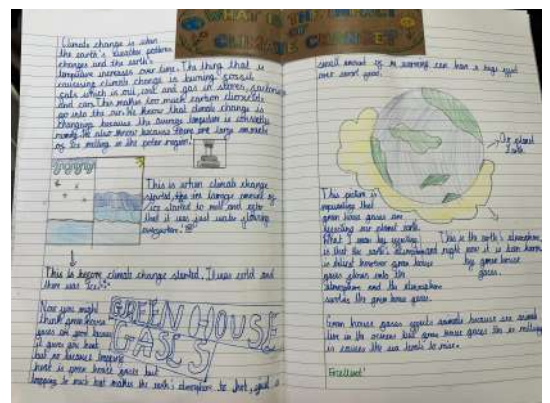 WHAT IS THE IMPACT
OF
CLIMATE CHANGE?
Climate change is when
the earth's weather patterns
changes and the earth's
temperature increases over time. The thing that is
causing climate change is burning fossil
fuels which is oil, coal and gas in stoves, factories
and cars. This makes too much carbon dioxide
go into the air. We know that climate change is
changing because the average temperature is constantly
We also know because there are large amounts
of ice melting in the polar region.
This is when climate change
started, the large amount of
ice started to melt and after
that it was just water flowing
everywhere!
This is before climate change started. It was cold and
there was ice!
Now you might
think green house
gases are good because
it gives us heat
but no because trapping
heat is green house gases but
trapping to much heat makes the earth's atmosphere to hot, just a
GREEN HOUSE
GASES
small amount of warming can have a huge effect
over
Our planet
Earth.
This picture is
representing that
green house gases are
affecting our planet earth.
What I mean by
is that the earth's
is however green house
gases goes into the
atmosphere and the atmosphere
the green house gases.
This is the earth's atmosphere,
right now it is been harm
by green house
gases.
Green house gases effects animals because are
live in the but green house gases the is melting
is causes the sea levels to rise.
Excellent!